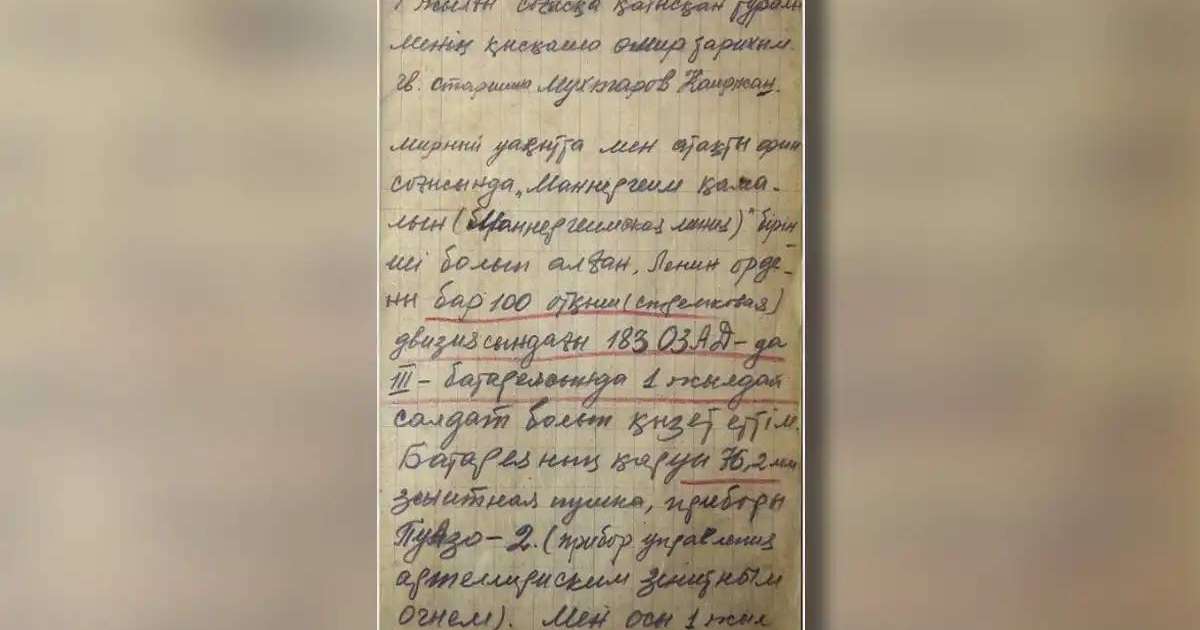 1 жылғы соғысқа қатысқан туралы
менің қысқаша өмир тарихым.
гв. старшина Мухтаров Каиржан.
мирный уақытта мен атақты фин
соғысында „Маннергеим қама-
лын (Маннергеимская линия)" бірін-
ші болып алған, Ленин орде-
ни бар 100 атқыш (стрелковая)
двизиясындағы 183 ОЗАД-да
III - батареясында 1 жылдай
салдат болып қызет еттім.
Батареяның қаруы 76,2 мм
зенитная пушка, приборы
Пуазо-2. (прибор управления
артеллириским зенитным
огнем). Мен осы 1 жыл